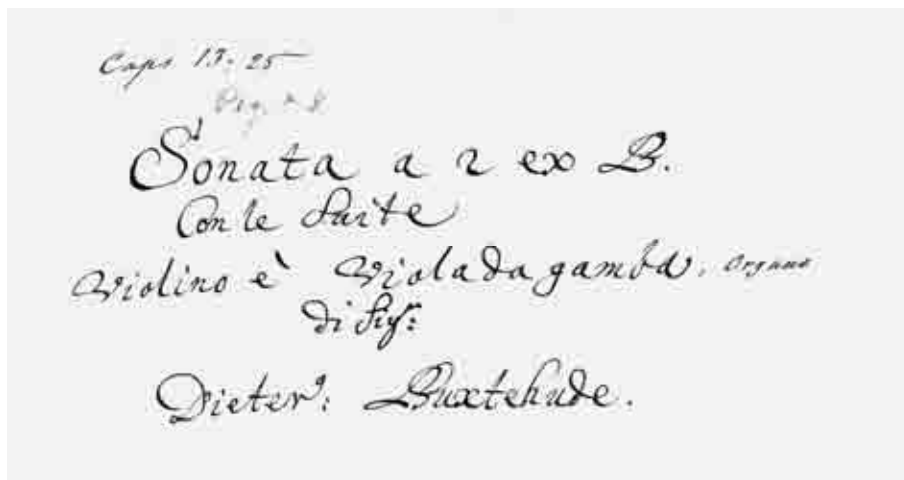 Caps 13. 25
Sonata a 2 ex B.
Con le Suite
Violino è Violadagamba. Organo
di Sigr:
Dieter9: Buxtehude.